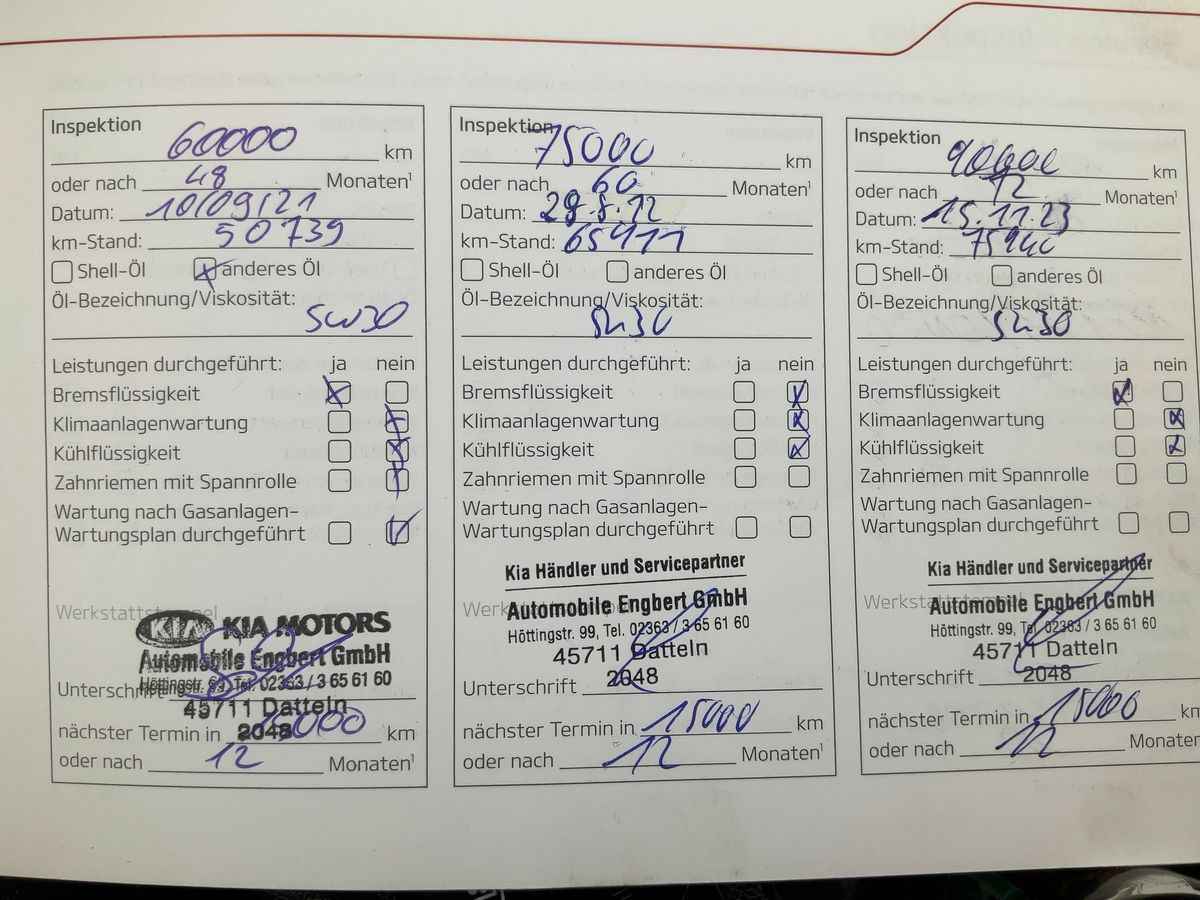 Inspektion
60000 km
oder nach 48 Monaten¹
Datum: 10/09/21
km-Stand: 50739
Shell-Öl anderes Öl
Öl-Bezeichnung/Viskosität:
5W30
Leistungen durchgeführt: ja nein
Bremsflüssigkeit
Klimaanlagenwartung
Kühlflüssigkeit
Zahnriemen mit Spannrolle
Wartung nach Gasanlagen-
Wartungsplan durchgeführt
Werkstattstempel
KIA KIA MOTORS
Automobile Engbert GmbH
Höttingstr. 99, Tel. 02363 / 3 65 61 60
45711 Datteln
2048
Unterschrift
nächster Termin in km
oder nach 12 Monaten¹
Inspektion
75000 km
oder nach 60 Monaten¹
Datum: 29.8.12
km-Stand: 65411
Shell-Öl anderes Öl
Öl-Bezeichnung/Viskosität:
5W30
Leistungen durchgeführt: ja nein
Bremsflüssigkeit
Klimaanlagenwartung
Kühlflüssigkeit
Zahnriemen mit Spannrolle
Wartung nach Gasanlagen-
Wartungsplan durchgeführt
Kia Händler und Servicepartner
Automobile Engbert GmbH
Höttingstr. 99, Tel. 02363 / 3 65 61 60
45711 Datteln
2048
Unterschrift
nächster Termin in 15000 km
oder nach 12 Monaten¹
Inspektion
90000 km
oder nach 12 Monaten¹
Datum: 15.11.23
km-Stand:
Shell-Öl anderes Öl
Öl-Bezeichnung/Viskosität:
5W30
Leistungen durchgeführt: ja nein
Bremsflüssigkeit
Klimaanlagenwartung
Kühlflüssigkeit
Zahnriemen mit Spannrolle
Wartung nach Gasanlagen-
Wartungsplan durchgeführt
Kia Händler und Servicepartner
Werkstattstempel
Automobile Engbert GmbH
Höttingstr. 99, Tel. 02363 / 3 65 61 60
45711 Datteln
2048
Unterschrift
nächster Termin in 15000 km
oder nach 12 Monaten